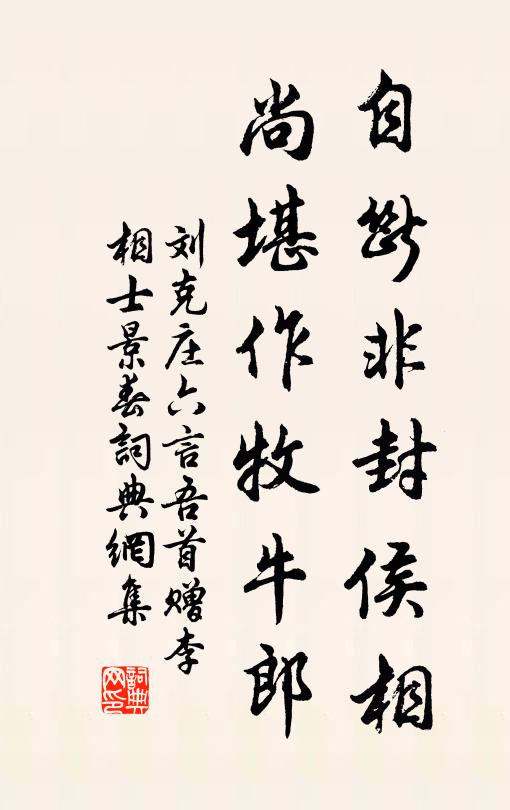 自断非封侯相
尚堪作牧牛郎
刘克庄六言吾首赠李
相士景春詞典網集
詞典网印